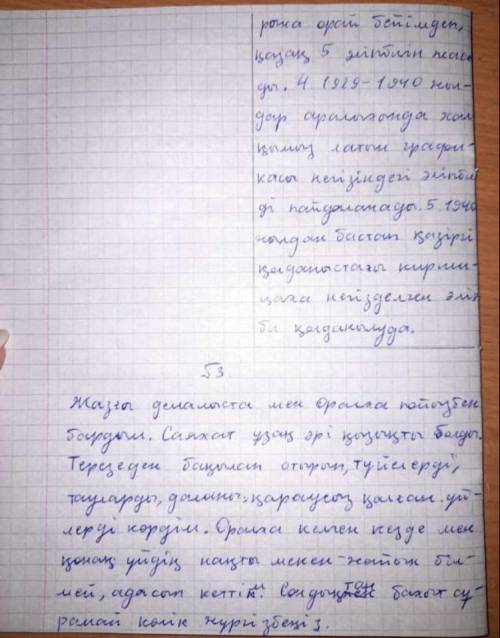 рына орай бейімдеп,
қазақ 5 әліпбиін жаса
ды. 4. 1929-1940 жыл-
дар аралығында хал
қымыз латын графи-
касы негізіндегі әліпби
ді пайдаланады. 5. 1940
жылдан бастап қазіргі
қолданыстағы кирли-
цаға негізделген әліп
би қолданылуда.
№3
Жазғы демалыста мен Оралға пойызбен
бардым. Саяхат ұзақ әрі қызықты болды.
Терезеден бақылап отырып, түйелерді,
тауларды, даланы, қараусыз қалған үй-
лерді көрдім. Оралға келген кезде мен
қонақ үйдің нақты мекен-жайын біл-
мей, адасып кеттім. Сондықтан бағыт сұ-
рамай көлік жүргізбеңіз.